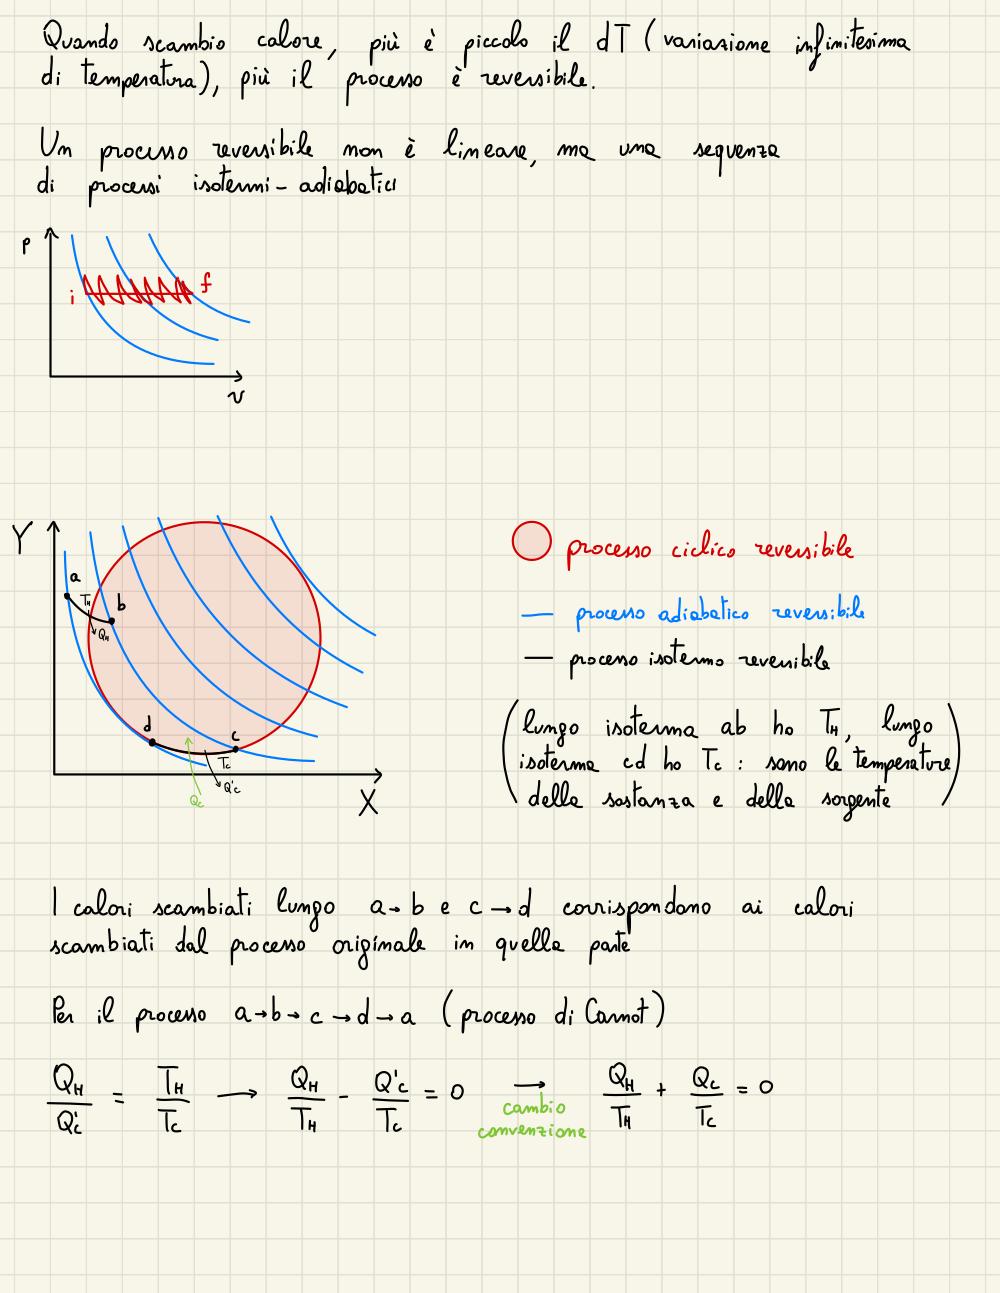 Quando scambio calore, più è piccolo il dT (variazione infinitesima
di temperatura), più il processo è reversibile.
Un processo reversibile non è lineare, ma una sequenza
di processi isotermi-adiabatici
P
i
f
v
Y
a
T_H
b
Q_H
d
c
T_c
Q'_c
Q_c
X
processo ciclico reversibile
processo adiabatico reversibile
processo isotermo reversibile
(lungo isoterma ab ho T_H, lungo
isoterma cd ho T_c : sono le temperature
della sostanza e della sorgente)
I calori scambiati lungo a→b e c→d corrispondono ai calori
scambiati dal processo originale in quella parte
Per il processo a→b→c→d→a (processo di Carnot)
Q_H/Q'_c = T_H/T_c → Q_H/T_H - Q'_c/T_c = 0 → Q_H/T_H + Q_c/T_c = 0
cambio
convenzione